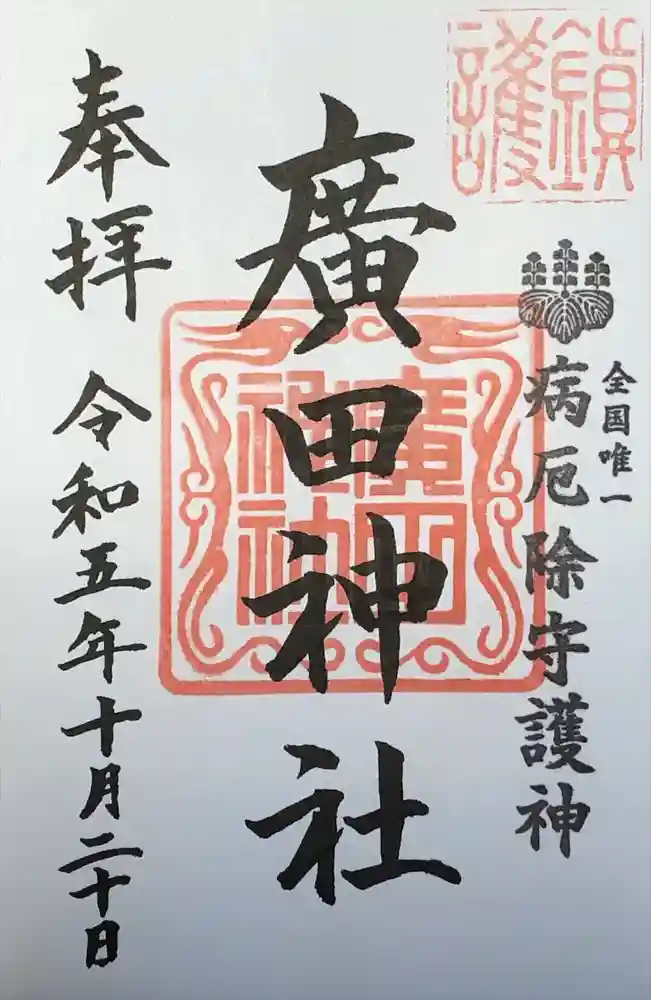 鎮護
全国唯一
病厄除守護神
廣田神社
廣田神社
奉拝 令和五年十月二十日